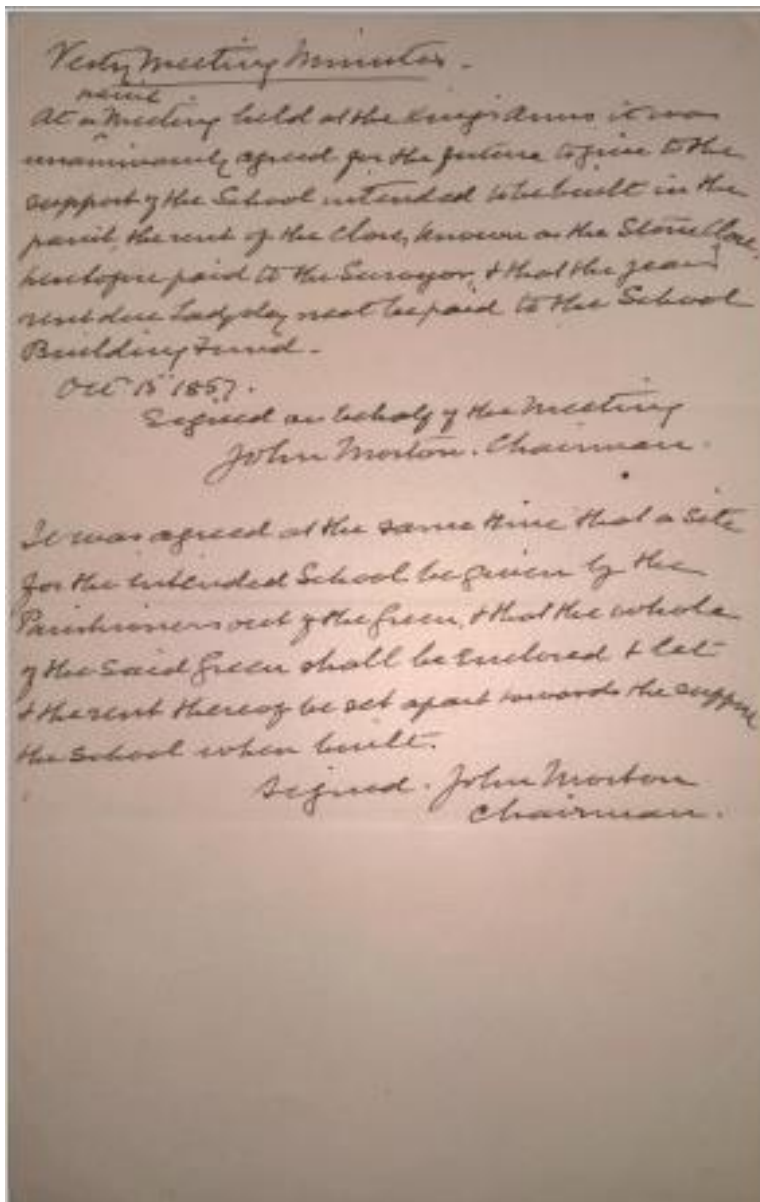 Vestry Meeting Minutes.
At a Meeting held at the King's Arms it was
unanimously agreed for the future to give to the
support of the School intended to be built in the
parish, the rent of the Close, known as the Stone Close,
heretofore paid to the Surveyor, & that the years
rent due Lady day next be paid to the School
Building Fund.
Oct 15 1857.
Signed on behalf of the Meeting
John Morton. Chairman.
It was agreed at the same time that a Site
for the intended School be given by the
Parishioners out of the Green, & that the whole
of the said Green shall be Enclosed & let
& the rent thereof be set apart towards the support
the School when built.
Signed. John Morton
Chairman.